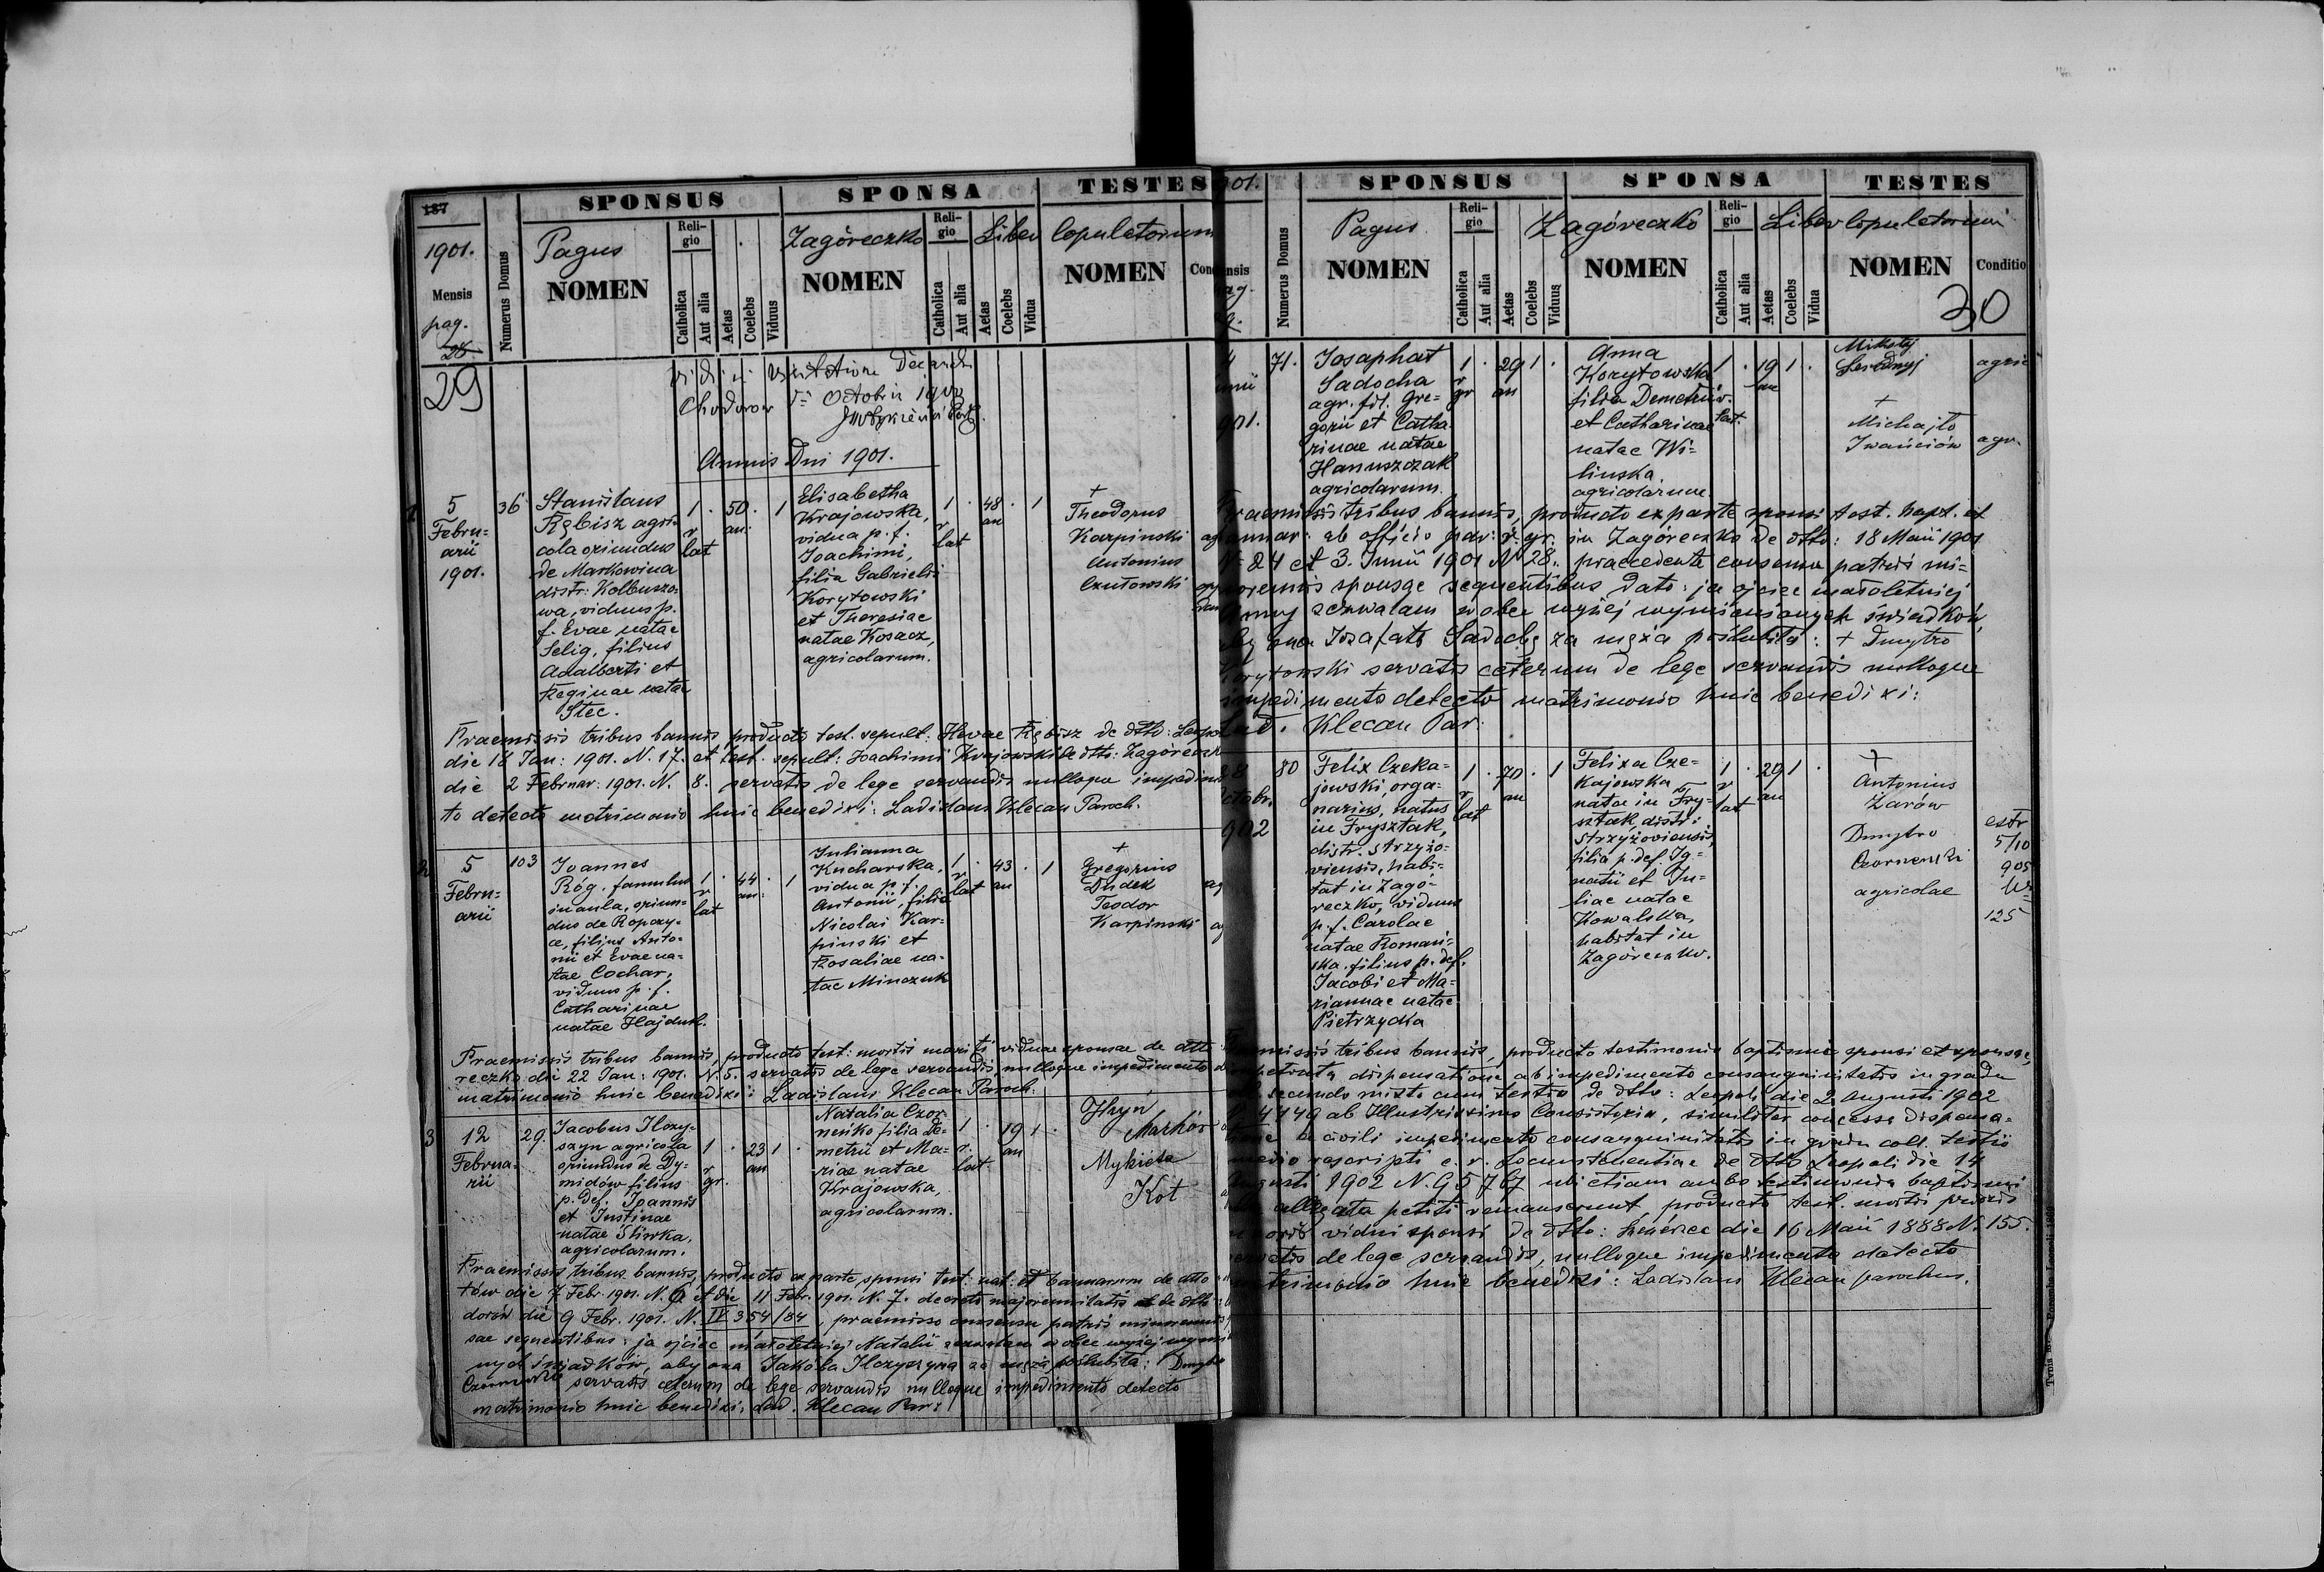 187
SPONSUS
SPONSA
TESTES
1901.
Mensis
pag.
28
29
Numerus Domus
Pagus
NOMEN
Reli-
gio
Catholica
Aut alia
Aetas
Coelebs
Viduus
Zagóreczko
NOMEN
Reli-
gio
Catholica
Aut alia
Aetas
Coelebs
Vidua
Liber Copulatorum
NOMEN
Chodorow
Octobris 1900
Annus Dni 1901.
1
5
Febru-
arii
1901.
36
Stanislaus
Rębisz agri-
cola oriundus
de Markowina
distr: Kolbuszo-
wa, viduus p.
f. Evae natae
Selig, filius
Adalberti et
Reginae natae
Stec.
1 · 50 · 1
r an:
lat
Elisabetha
Krajowska,
vidua p. f.
Joachimi,
filia Gabrielis
Korytowski
et Theresiae
natae Kosacz,
agricolarum.
1 · 48 · 1
r an
lat
+
Theodorus
Karpinski
Antonius
Czutowski
Praemissis tribus bannis, producto test. sepult: Hevae Rębisz de dtto: Leopo
die 18 Jan: 1901. N. 17. et test. sepult: Joachimi Krajowski de dtto: Zagóreczk
die 2 Februar: 1901. N. 8. servatis de lege servandis nulloque impedimen
to detecto matrimonio huic benedixi: Ladislaus Klecan Paroch.
2
5
Febru-
arii
103
Joannes
Róg, famulus
in aula, oriun-
dus de Ropczy-
ce, filius Anto-
nii et Evae na-
tae Cochar,
viduus p. f.
Catharinae
natae Hajduk.
1 · 44 · 1
r an:
lat
Julianna
Kucharska,
vidua p. f.
Antonii, filia
Nicolai Kar-
pinski et
Rosaliae na-
tae Minczuk
1 · 43 · 1
r an
lat
+
Gregorius
Dudek
Teodor
Karpinski
Praemissis tribus bannis, producto test: mortis mariti viduae sponsae de dtto
reczko die 22 Jan: 1901. N. 5. servatis de lege servandis, nulloque impedimento
matrimonio huic benedixi: Ladislaus Klecan Paroch.
3
12
Februa-
rii
29.
Jacobus Ilczy-
szyn agricola
oriundus de Dy-
midów filius
p. def. Joannis
et Justinae
natae Śliwka,
agricolarum.
1 · 23 1 ·
r an
gr.
Natalia Czor-
neńko filia De-
metrii et Ma-
riae natae
Krajowska,
agricolarum.
1 · 19 1 ·
r. an
lat.
Hryń
Marków
Mykieta
Kot
Praemissis tribus bannis, producto ex parte sponsi test: nat: et bannarum de dtto
tów die 7 Febr. 1901. N. 9 et die 11 Febr. 1901. N. 7. decreto majorennitatis de dtto
dorów die 9 Febr. 1901. N. IV 354/84, praemisso consensu patris minorennis
sae sequentibus: ja ojciec małoletniej Natalii zezwalam wobec wyżej wymi
nych świadków, aby ona Jakóba Ilczyszyna za męża poślubiła: Dmytro
servatis ceterum de lege servandis nulloque impedimento detecto
matrimonio huic benedixi: Lad. Klecan Par:
901.
SPONSUS
SPONSA
TESTES
Numerus Domus
Pagus
NOMEN
Reli-
gio
Catholica
Aut alia
Aetas
Coelebs
Viduus
Zagóreczko
NOMEN
Reli-
gio
Catholica
Aut alia
Aetas
Coelebs
Vidua
Liber Copulatorum
NOMEN
Conditio
30
4
unii
901.
71.
Josaphat
Sadocha
agr. fil. Gre-
gorii et Catha-
rinae natae
Hanuszczak
agricolarum.
1 · 29 1 ·
r an
gr
Anna
Korytowska
filia Demetrii
et Catharinae
natae Wi-
linska
agricolarum.
1 · 19 1 ·
r. an
lat.
Mikołaj
agric
+
Michajło
Iwańciów
agr.
Praemissis tribus bannis, producto ex parte sponsi test. bapt. et
bannar: ab officio par: r. gr. in Zagóreczko de dtto: 18 Maii 1901
N. 24 et 3. Junii 1901 N 28., praecedente consensu patris mi-
norennis sponsae sequentibus dato: ja ojciec małoletniej
Anny zezwalam wobec wyżej wymienianych świadków,
aby ona Jozafata Sadochę za męża poślubiła: + Dmytro
Korytowski servatis ceterum de lege servandis nulloque
impedimento detecto matrimonio huic benedixi:
Lad. Klecan Par:
28
ctobr.
902
80
Felix Czeka-
jowski, orga-
narius, natus
in Frysztak,
distr. Strzyżo-
viensis, habi-
tat in Zagó-
reczko, viduus
p. f. Carolae
natae Romań-
ska, filius p. def.
Jacobi et Ma-
riannae natae
Pietrzycka
1 · 70 · 1
r an
lat
Felixa Cze-
kajowska
nata in Fry-
sztak, distr:
Strzyżoviensis,
filia p. def. Ig-
natii et Ju-
liae natae
Kowalska,
habitat in
Zagóreczko.
1 · 29 1 ·
r an
lat
+
Antonius
Żarów
Dmytro
agricolae
5/10
905
125
Praemissis tribus bannis, producto testimonio baptismi sponsi et sponsae,
impetrata dispensatione ab impedimento consanguinitatis in gradu
secundo mixto cum tertio de dtto: Leopoli die 2 Augusti 1902
N. 4149 ab Illustrissimo Consistorio, similiter concessa dispensa-
tione a civili impedimento consanguinitatis in gradu coll. tertio
medio rescripti c. r. Locumtenentiae de dtto Leopoli die 14
Augusti 1902 N. 95767 ubi etiam ambo testimonia baptismi
allegata petiti remanserunt, producto test. mortis prioris
uxoris vidui sponsi de dtto: die 16 Maii 1888 N. 155.
servatis de lege servandis, nulloque impedimento detecto
matrimonio huic benedixi: Ladislaus Klecan parochus.